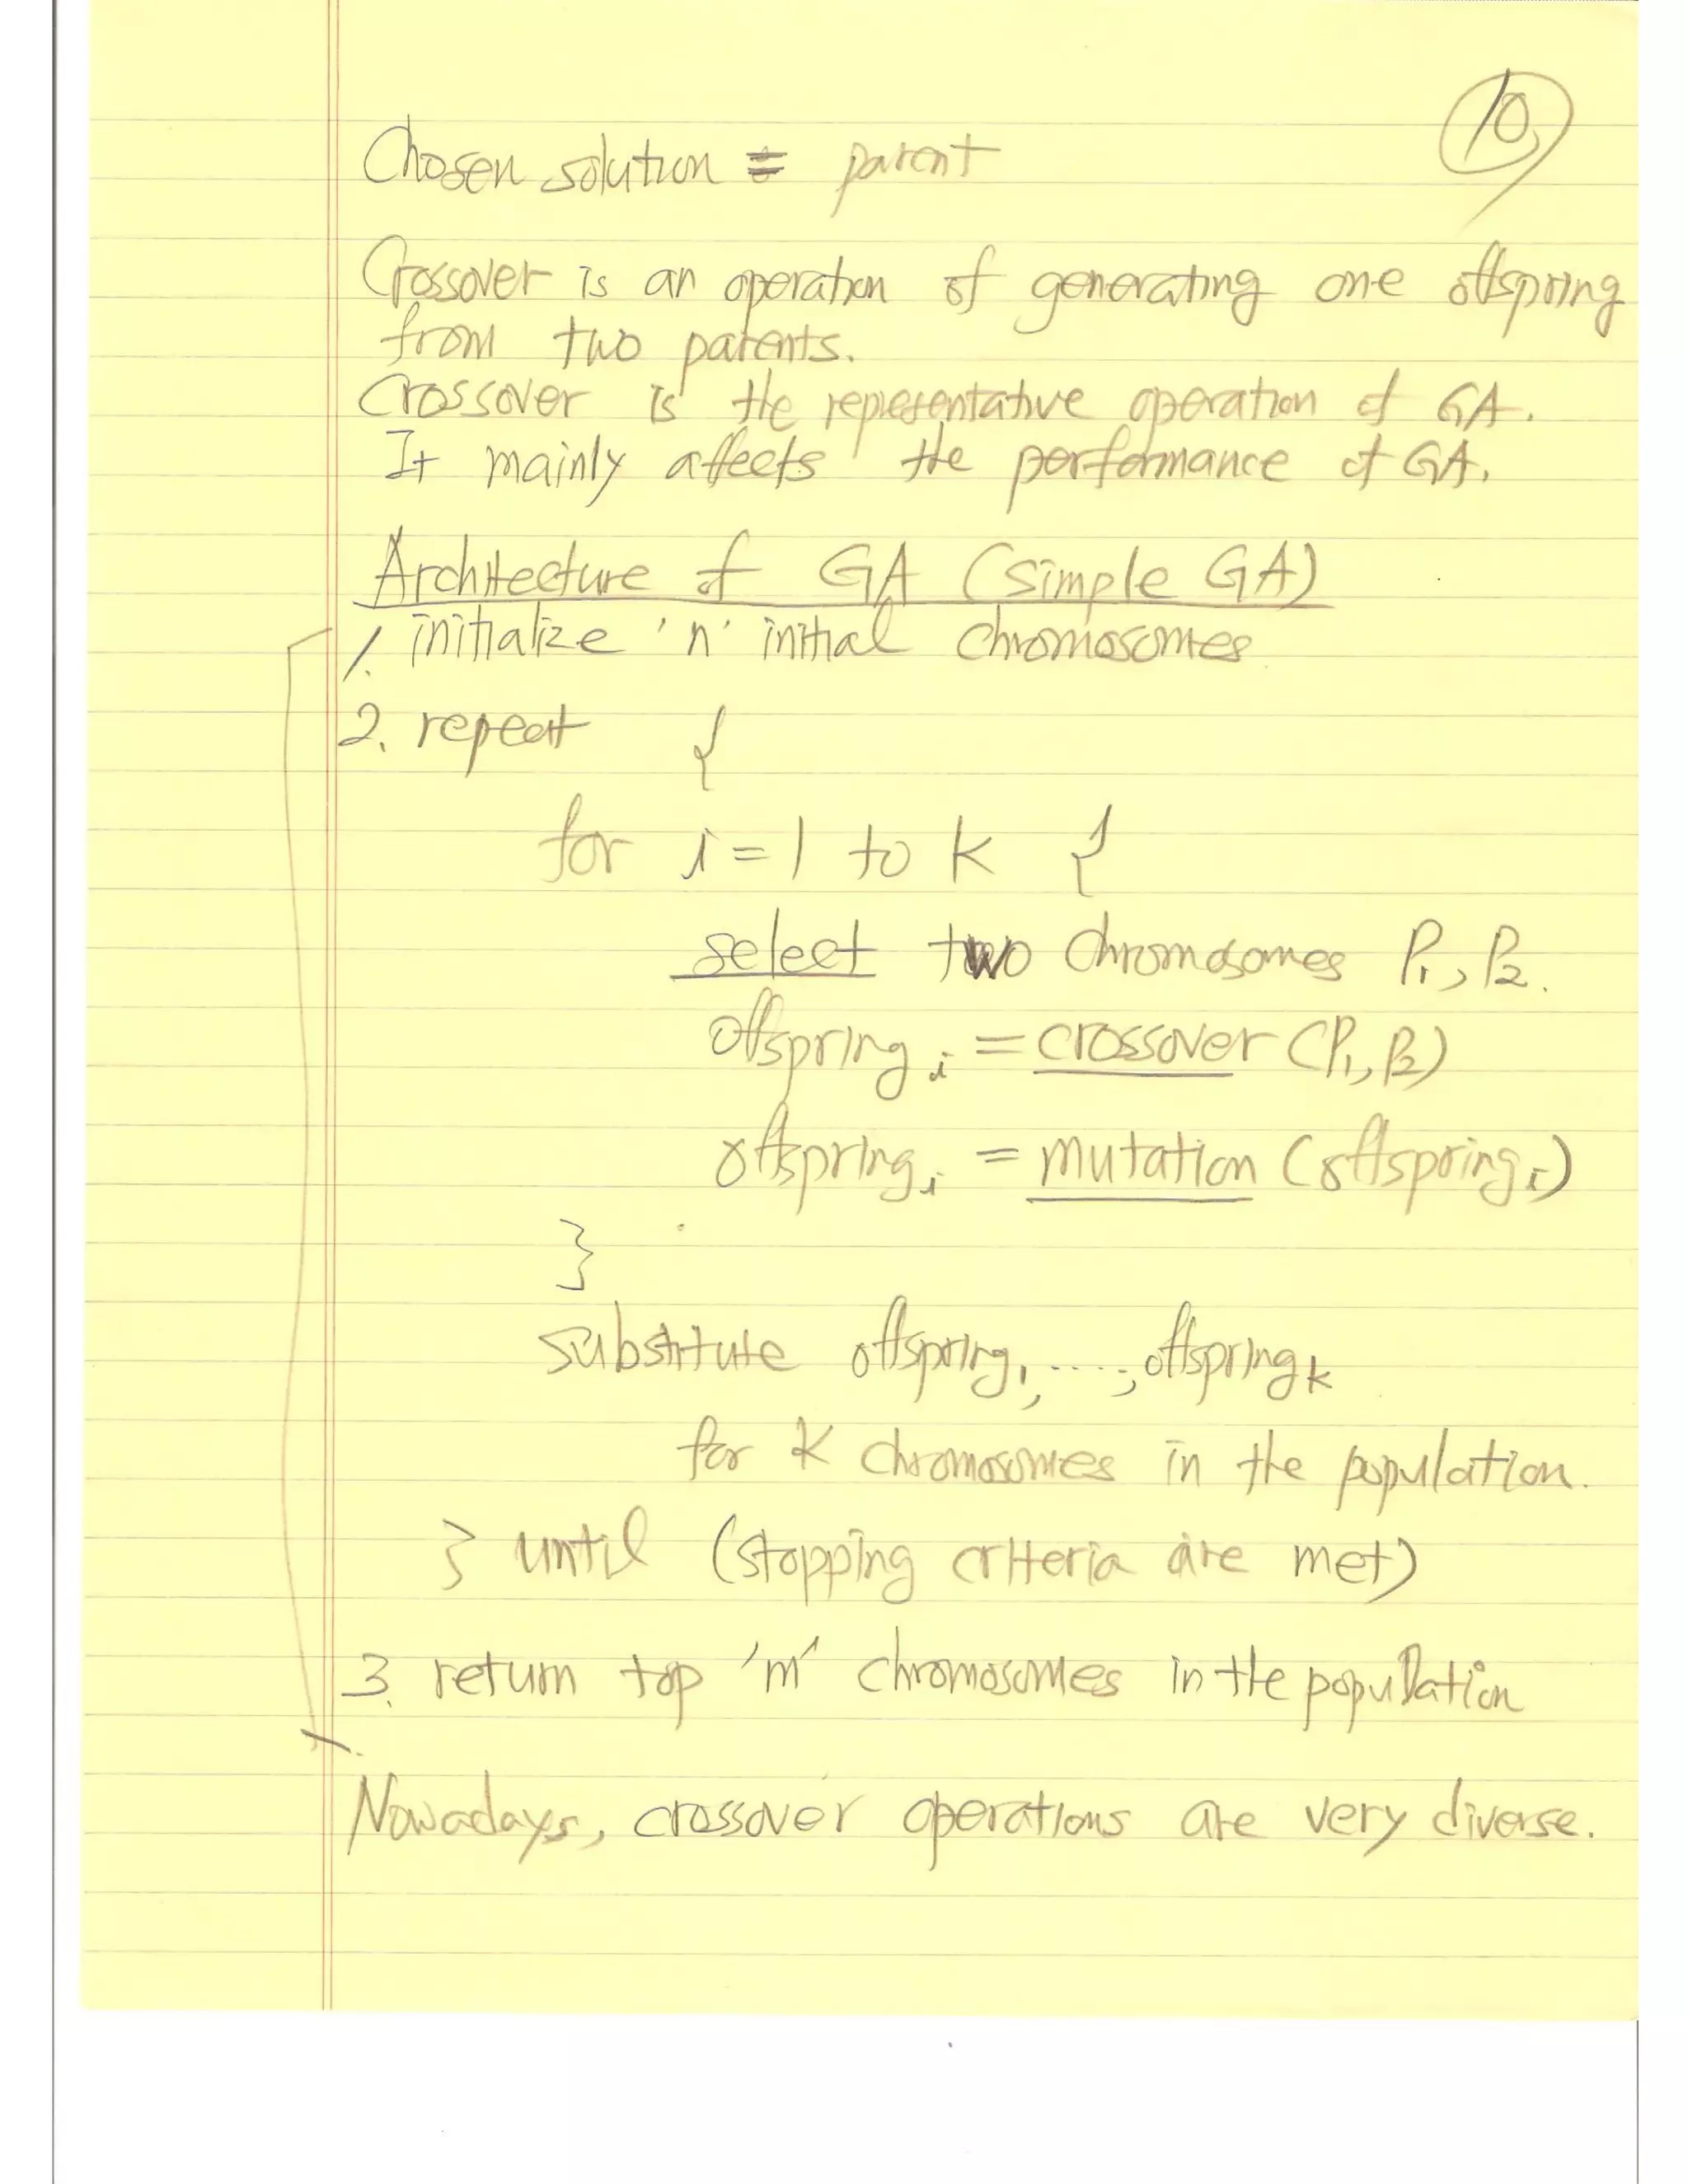 10
Chosen solution = parent
Crossover is an operation of generating one offspring
from two parents.
Crossover is the representative operation of GA.
It mainly affects the performance of GA.
Architecture of GA (simple GA)
1. initialize 'n' initial chromosomes
2. repeat {
for i=1 to k {
select two chromosomes P1, P2.
offspring i = crossover (P1, P2)
offspring i = mutation (offspring i)
}
substitute offspring1, ...., offspring k
for K chromosomes in the population.
} until (stopping criteria are met)
3. return top 'm' chromosomes in the population
Nowadays, crossover operations are very diverse.